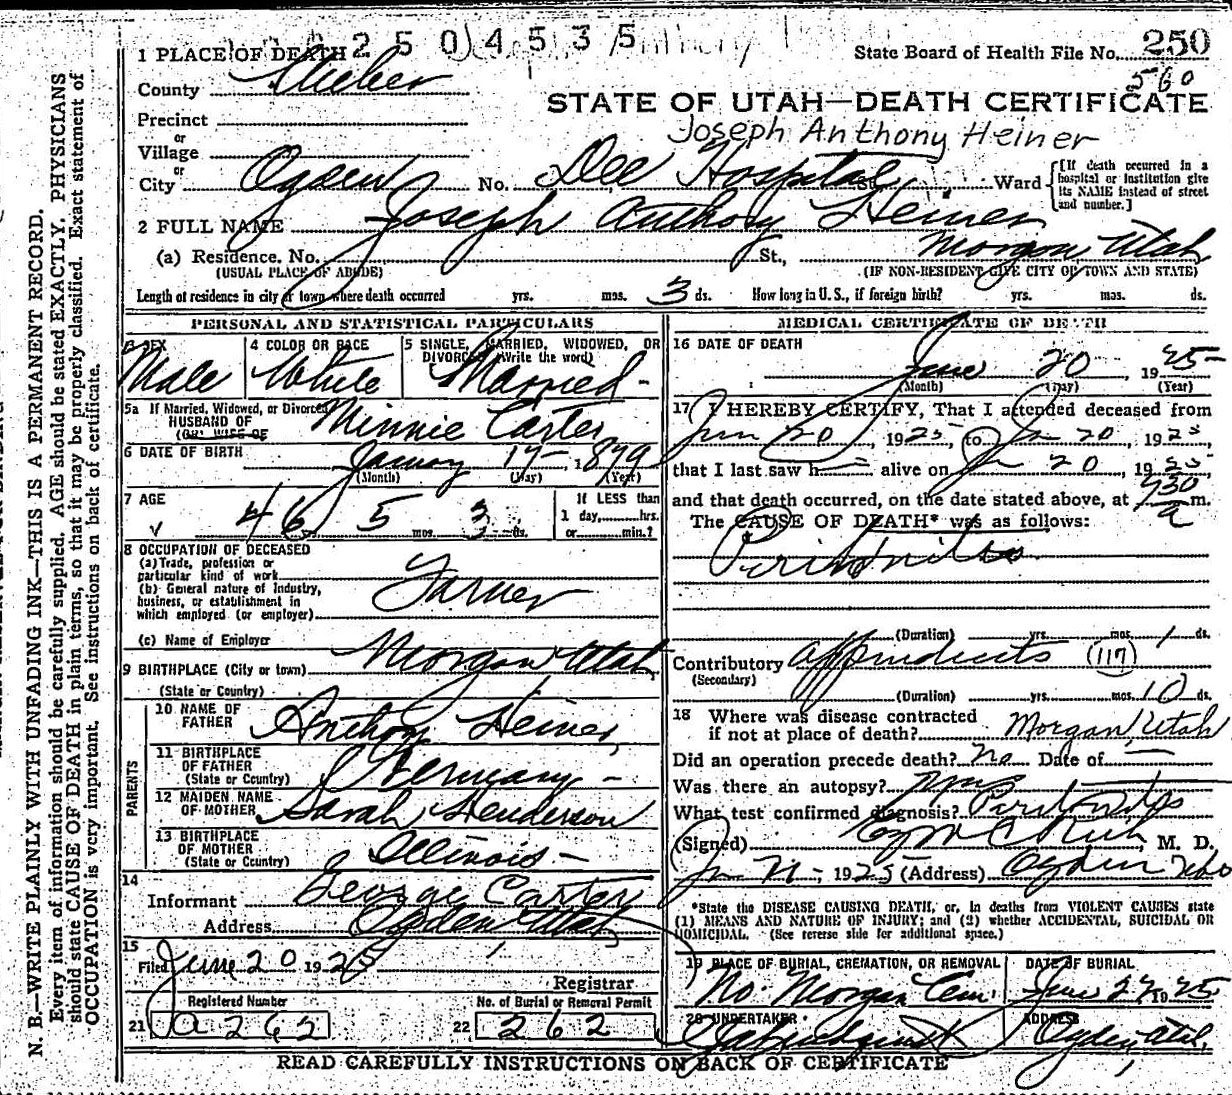 2504535
State Board of Health File No. 250
560
1 PLACE OF DEATH
County Weber
STATE OF UTAH—DEATH CERTIFICATE
Precinct
Joseph Anthony Heiner
or
Village
or
City Ogden No. Dee Hospital St. Ward [If death occurred in a hospital or institution give its NAME instead of street and number.]
2 FULL NAME Joseph Anthony Heiner
(a) Residence. No. St., Morgan, Utah
(USUAL PLACE OF ABODE) (IF NON-RESIDENT GIVE CITY OR TOWN AND STATE)
Length of residence in city or town where death occurred yrs. mos. 3 ds. How long in U.S., if foreign birth? yrs. mos. ds.
PERSONAL AND STATISTICAL PARTICULARS
3 SEX
Male
4 COLOR OR RACE
White
5 SINGLE, MARRIED, WIDOWED, OR
DIVORCED (Write the word)
Married
5a If Married, Widowed, or Divorced
HUSBAND OF Minnie Carter
(OR) WIFE OF
6 DATE OF BIRTH January 17 1879
(Month) (Day) (Year)
7 AGE 46 5 mos. 3 ds.
If LESS than
1 day, hrs.
or min.?
8 OCCUPATION OF DECEASED
(a) Trade, profession or
particular kind of work
(b) General nature of Industry,
business, or establishment in
which employed (or employer)
Farmer
(c) Name of Employer
9 BIRTHPLACE (City or town) Morgan Utah
(State or Country)
PARENTS
10 NAME OF
FATHER Anthony Heiner
11 BIRTHPLACE
OF FATHER
(State or Country) Germany
12 MAIDEN NAME
OF MOTHER Sarah Henderson
13 BIRTHPLACE
OF MOTHER
(State or Country) Illinois
14
Informant George Carter
Address Ogden Utah
15
Filed June 20 1925
Registrar
Registered Number
21 a262
No. of Burial or Removal Permit
22 262
MEDICAL CERTIFICATE OF DEATH
16 DATE OF DEATH
June 20 1925
(Month) (Day) (Year)
17 I HEREBY CERTIFY, That I attended deceased from
Jun 20, 1925, to Jun 20, 1925,
that I last saw h alive on Jun 20, 1925
and that death occurred, on the date stated above, at 730 a m.
The CAUSE OF DEATH* was as follows:
Peritonitis
(Duration) yrs. mos. 1 ds.
Contributory Appendicitis (117)
(Secondary)
(Duration) yrs. mos. 10 ds.
18 Where was disease contracted
if not at place of death? Morgan, Utah
Did an operation precede death? No Date of
Was there an autopsy?
What test confirmed diagnosis? Peritonitis
(Signed) Rich, M. D.
1925 (Address) Ogden Utah
*State the DISEASE CAUSING DEATH, or, in deaths from VIOLENT CAUSES state
(1) MEANS AND NATURE OF INJURY; and (2) whether ACCIDENTAL, SUICIDAL OR
HOMICIDAL. (See reverse side for additional space.)
19 PLACE OF BURIAL, CREMATION, OR REMOVAL
No. Morgan Cem.
DATE OF BURIAL
June 1925
20 UNDERTAKER
ADDRESS
Ogden, Utah.
READ CAREFULLY INSTRUCTIONS ON BACK OF CERTIFICATE
N. B.—WRITE PLAINLY WITH UNFADING INK—THIS IS A PERMANENT RECORD.
Every item of information should be carefully supplied. AGE should be stated EXACTLY. PHYSICIANS
should state CAUSE OF DEATH in plain terms, so that it may be properly classified. Exact statement of
OCCUPATION is very important. See instructions on back of certificate.